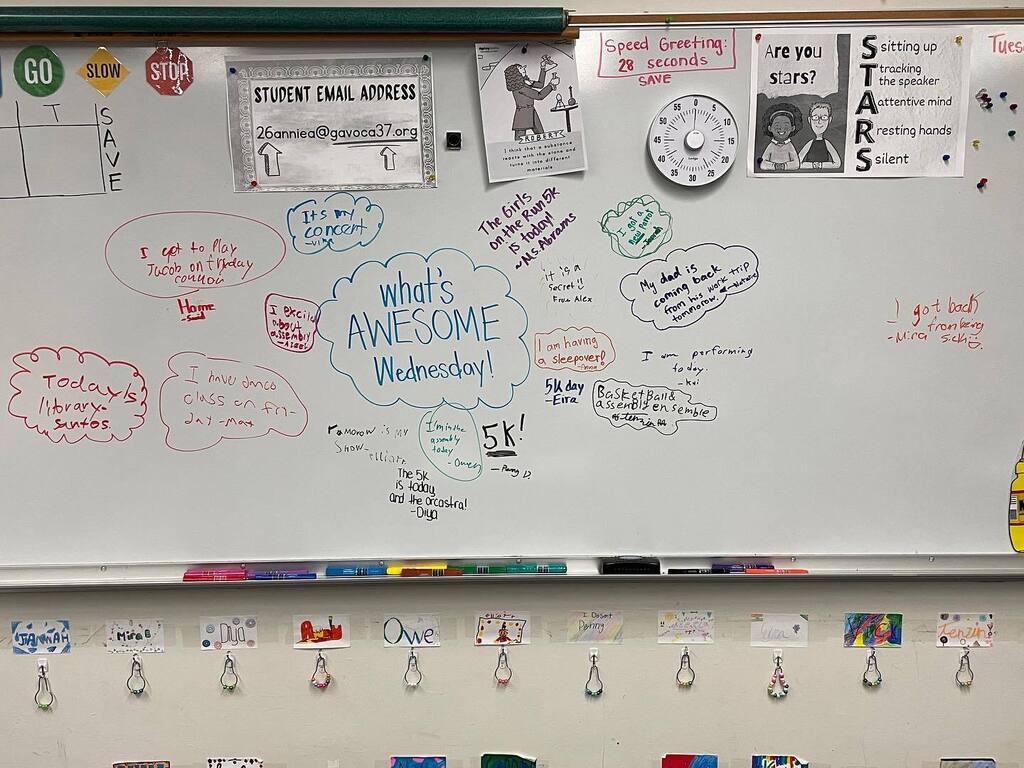 GO
SLOW
STOP
T
SAVE
STUDENT EMAIL ADDRESS
26anniea@gavoca37.org
ROBERT
I think that a substance
reacts with the stone and
turns it into different
materials
Speed Greeting:
28 seconds
SAVE
55 0 5
50 10
45 15
40 20
35 30 25
Are you
stars?
STARS
sitting up
tracking
the speaker
attentive mind
resting hands
silent
Tues
I get to Play
Jacob on friday
Home
It's my
concert
The Girls
on the Run 5K
is today!
~Ms. Abrams
I got a
new Parrot
I excited
about
assembly
what's
AWESOME
Wednesday!
it is a
secret!!
From Alex
My dad is
coming back
from his work trip
tommorow.
I am having
a sleepover!
I am performing
today.
- Kai
5K day
- Eira
BasketBall &
assembly ensemble
I got back
from being
- Mira sick
Today's
library-
santos
I have dance
class on fri-
day - mae
Tomorow is my
Show-
I'm in the
assembly
today
- Owen
5K!
The 5K
is today
and the orcastra!
- Diya
JANNAH
Mira B
Diya
Owe
Tenzin